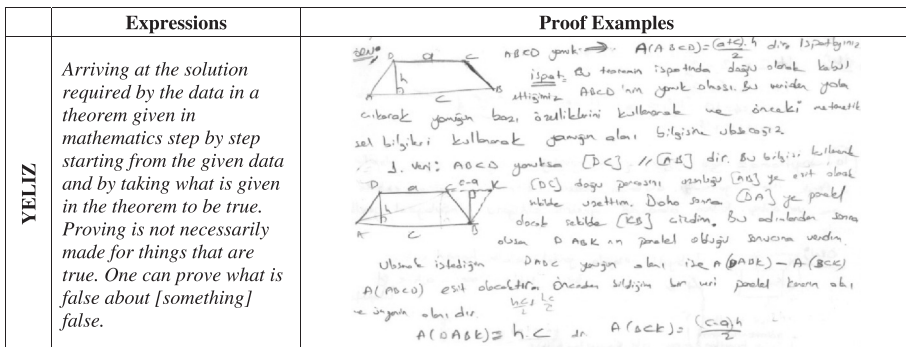 Expressions
Proof Examples
YELIZ
Arriving at the solution
required by the data in a
theorem given in
mathematics step by step
starting from the given data
and by taking what is given
in the theorem to be true.
Proving is not necessarily
made for things that are
true. One can prove what is
false about [something]
false.
ABCD yamuk ⟹ A(ABCD)=(a+c).h/2 dir. Ispatlayınız
D a C
h
A C B
ispat= Bu teoremin ispatında doğru olarak kabul
ettiğimiz ABCD'nin yamuk olması. Bu veriden yola
çıkarak yamuğun bazı özelliklerini kullanarak ve önceki matematik
sel bilgileri kullanarak yamuğun alanı bilgisine ulaşacağız
1. Veri: ABCD yamuksa [DC] // [AB] dir. Bu bilgiyi kullanarak
D a C c-a K
h h
A C B
[DC] doğru parçasını uzunluğu [AB] ye eşit olacak
şekilde uzattım. Daha sonra [DA] ye paralel
olacak şekilde [KB] çizdim. Bu adımlardan sonra
oluşan DABK nın paralel olduğu sonucuna vardım.
Ulaşmak istediğim DABC yamuğun alanı ise A(DABK) − A(BCK)
A(ABCD) eşit olacaktır. Önceden bildiğim bir veri paralel kenarın alanı
ve üçgenin alanıdır.
A(DABK)= h.c dir A(BCK)= (c-a).h/2